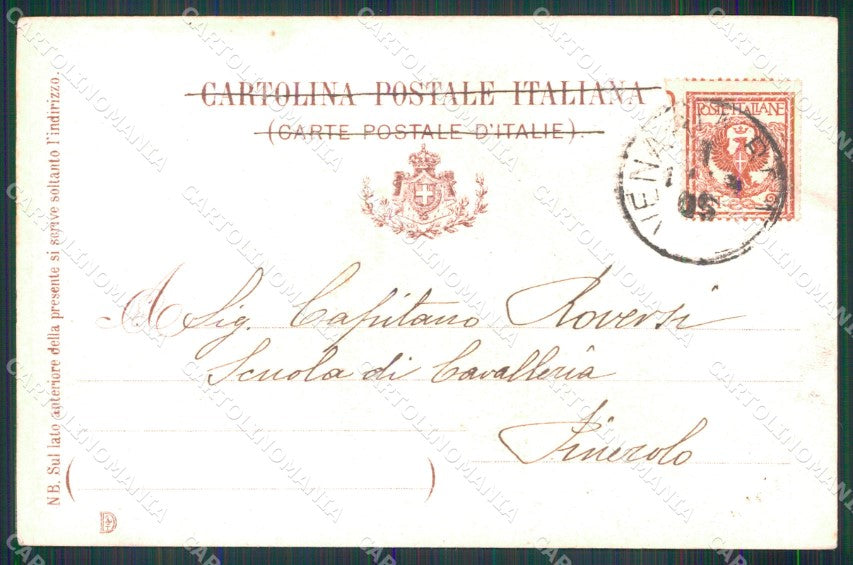 CARTOLINA POSTALE ITALIANA
(CARTE POSTALE D'ITALIE).
POSTE ITALIANE
VENA
05
A Sig. Capitano Roversi
Scuola di Cavalleria
Pinerolo
NB. Sul lato anteriore della presente si scrive soltanto l'indirizzo.
CARTOLINOMANIA